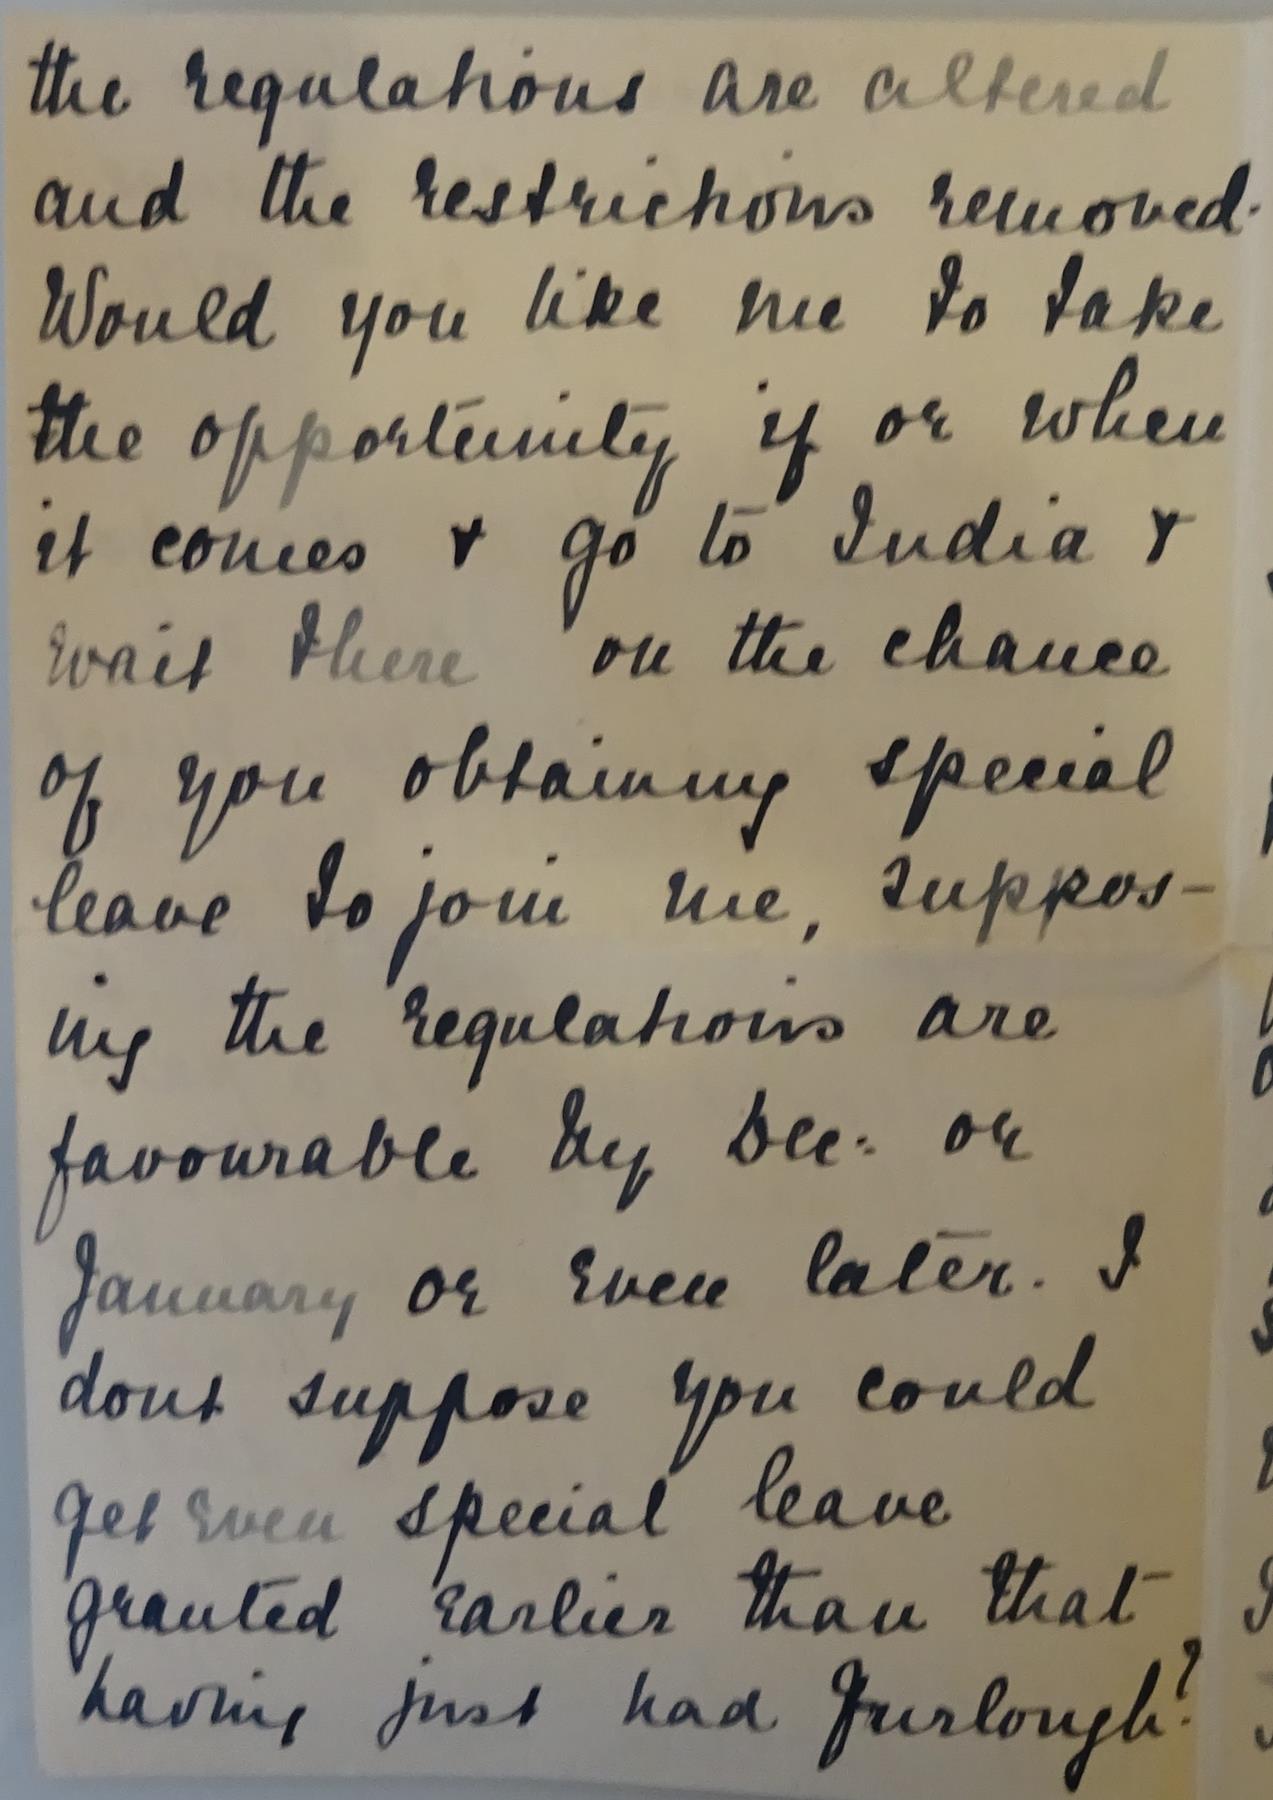 the regulations are altered
and the restrictions removed.
Would you like me to take
the opportunity if or when
it comes & go to India &
wait there on the chance
of you obtaining special
leave to join me, suppos-
ing the regulations are
favourable by Dec: or
January or even later. I
dont suppose you could
get even special leave
granted earlier than that
having just had furlough?